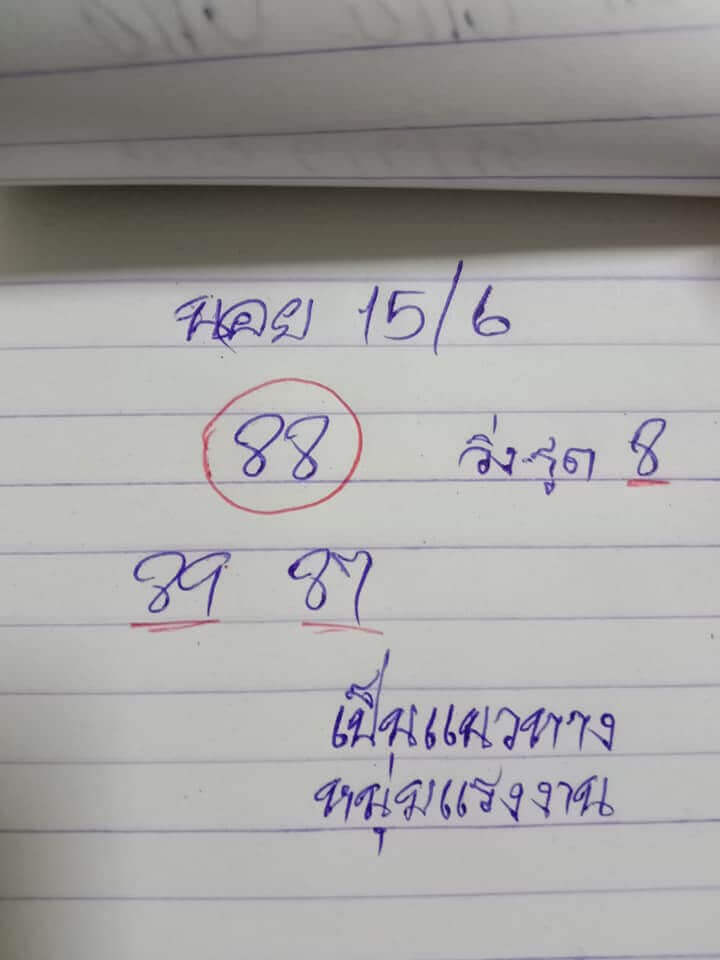 นอย 15/6
88 วิ่ง-รูด 8
89 87
เป็นแนวทาง
หนุ่มแรงงาน